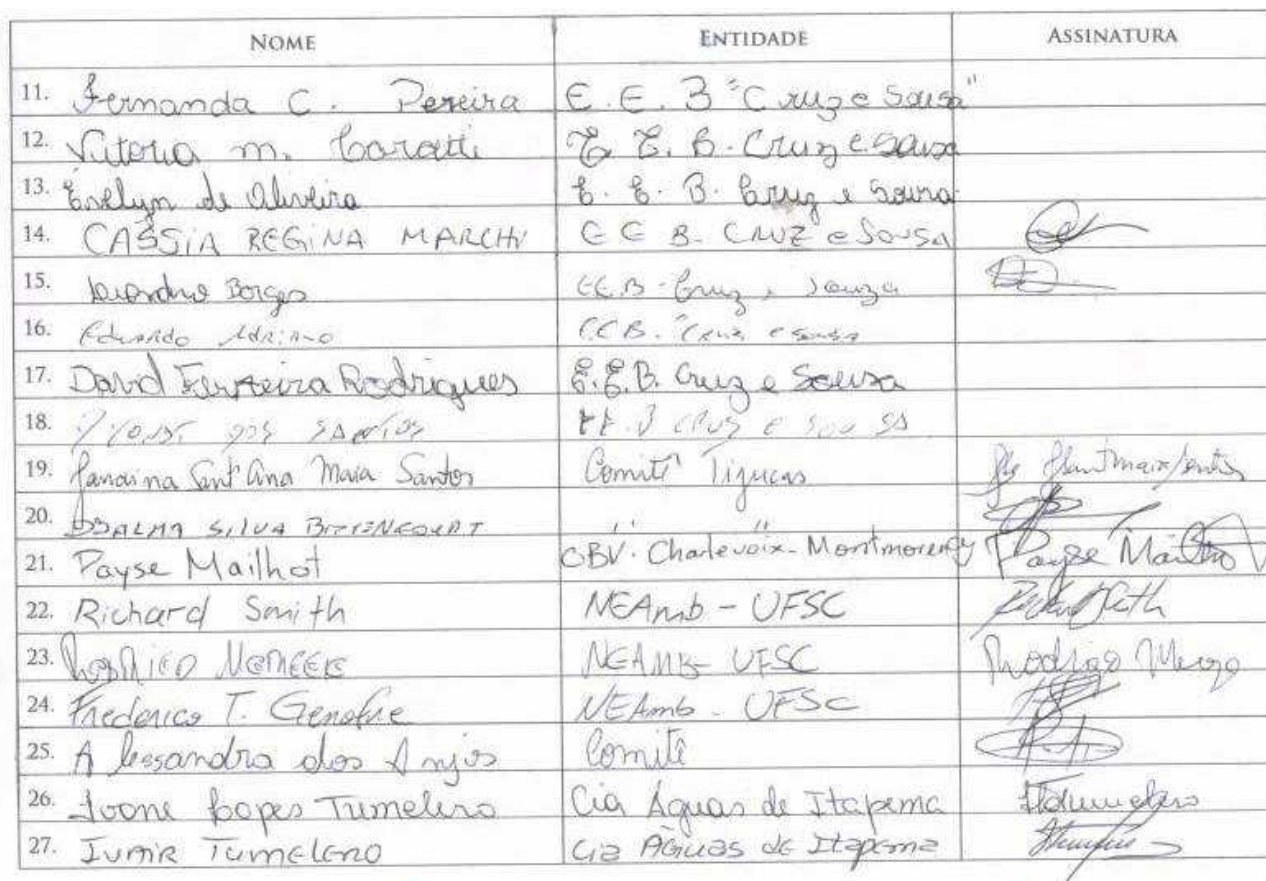 NOME ENTIDADE ASSINATURA
11. Fernanda C. Pereira E.E.B "Cruz e Sousa"
12. Vitoria M. Caratti E. E. B. Cruz e Sousa
13. Evelyn de Oliveira E. E. B. Cruz e Sousa
14. CASSIA REGINA MARCHI E E B. CRUZ e SOUSA
15. Leandro Borges E.E.B - Cruz e Souza
16. Eduardo Adriano E.E.B. "Cruz e sousa
17. David Ferreira Rodrigues E.E.B. Cruz e Souza
18. dos SANTOS EE.B CRUZ e SOUSA
19. Janaina Sant'Ana Maia Santos Comitê Tijucas
20. DJALMA SILVA BITTENCOURT " "
21. Payse Mailhot OBV. Charlevoix-Montmorency Payse Mailhot
22. Richard Smith NEAmb - UFSC
23. NEAMB - UFSC Rodrigo
24. Frederico T. Genofre NEAmb - UFSC
25. Alessandra dos Anjos Comitê
26. Ivone Lopes Tumelero Cia Águas de Itapema
27. IVANIR TUMELERO Cia ÁGUAS de Itapema